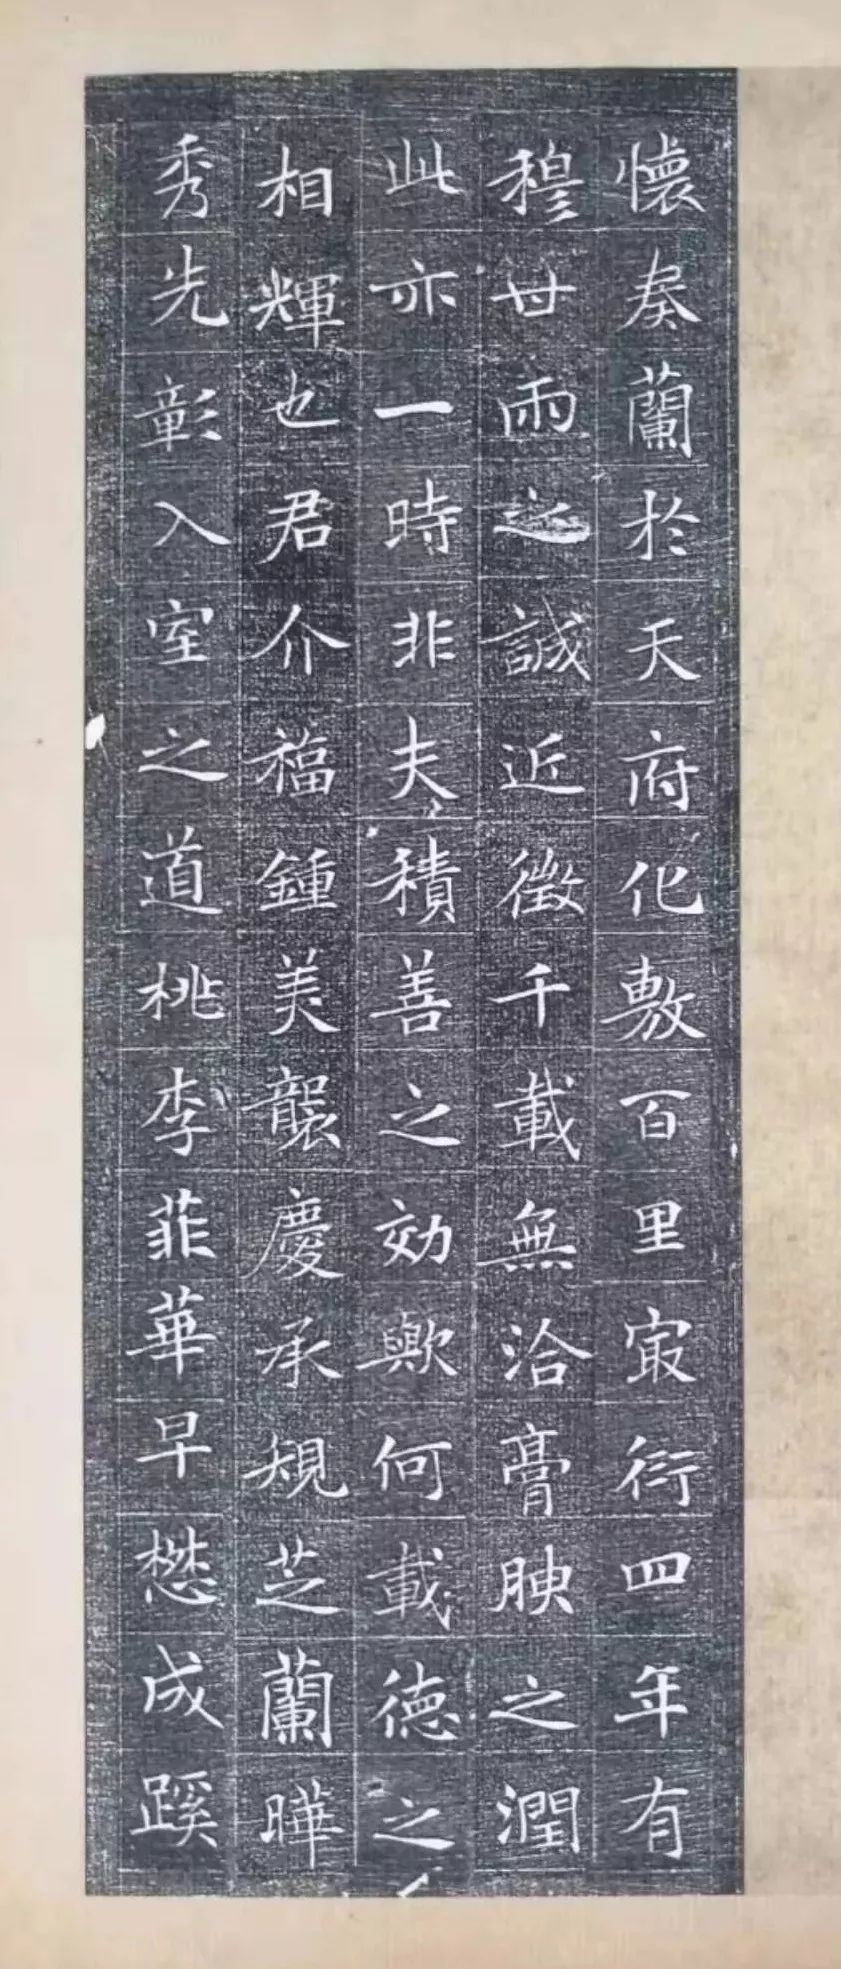 懐奏蘭於天府化敷百里冣衍四年有
穆世雨之誠近徴千載無洽膏腴之潤
此亦一時非夫積善之効歟何載德之
相輝也君介福鍾美襲慶承規芝蘭曄
秀先彰入室之道桃李菲華早懋成蹊